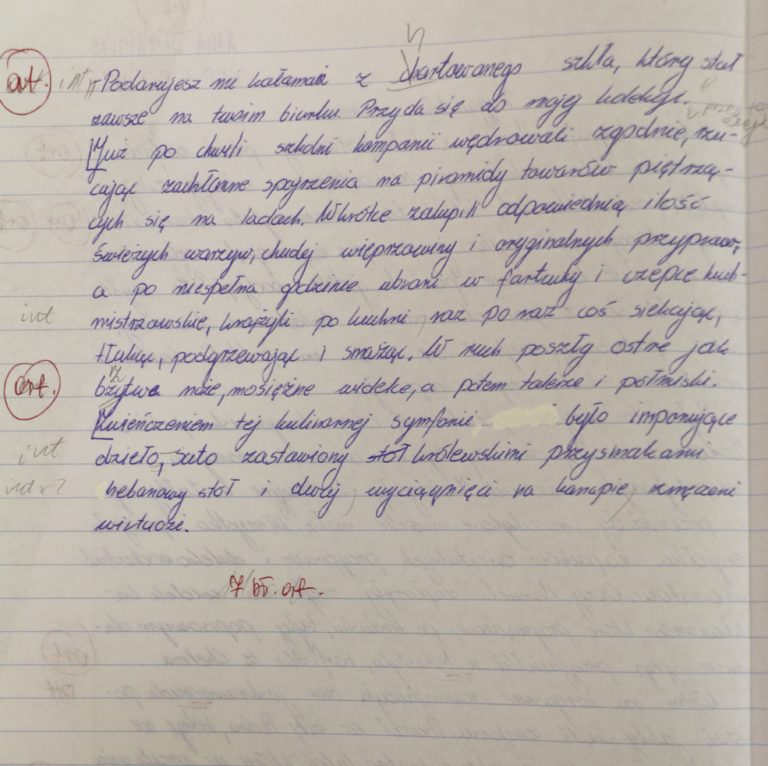 h
ort. int „Podarujesz mi kałamarz z chartowanego szkła, który stał
zawsze na twoim biurku. Przyda się do mojej kolekcji.
[Już po chwili szkolni kompanii wędrowali zgodnie, rzu-
cając zachłanne spojrzenia na piramidy towarów piętrzą-
cych się na ladach. Wkrótce zakupili odpowiednią ilość
świeżych warzyw, chudej wieprzowiny i oryginalnych przypraw,
a po niespełna godzinie ubrani w fartuchy i czepce kuch-
int mistrzowskie, krążyli po kuchni, raz po raz coś siekając,
tłukąc, podgrzewając i smażąc. W ruch poszły ostre jak
ort. bżytwa noże, mosiężne widelce, a potem talerze i półmiski.
rz
[Zwieńczeniem tej kulinarnej symfonii było imponujące
int dzieło, suto zastawiony stół królewskimi przysmakami
int x 2 hebanowy stół i dwój, wyciągnięci na kanapie, zmęczeni
wirtuozi.
7 bł. ort.